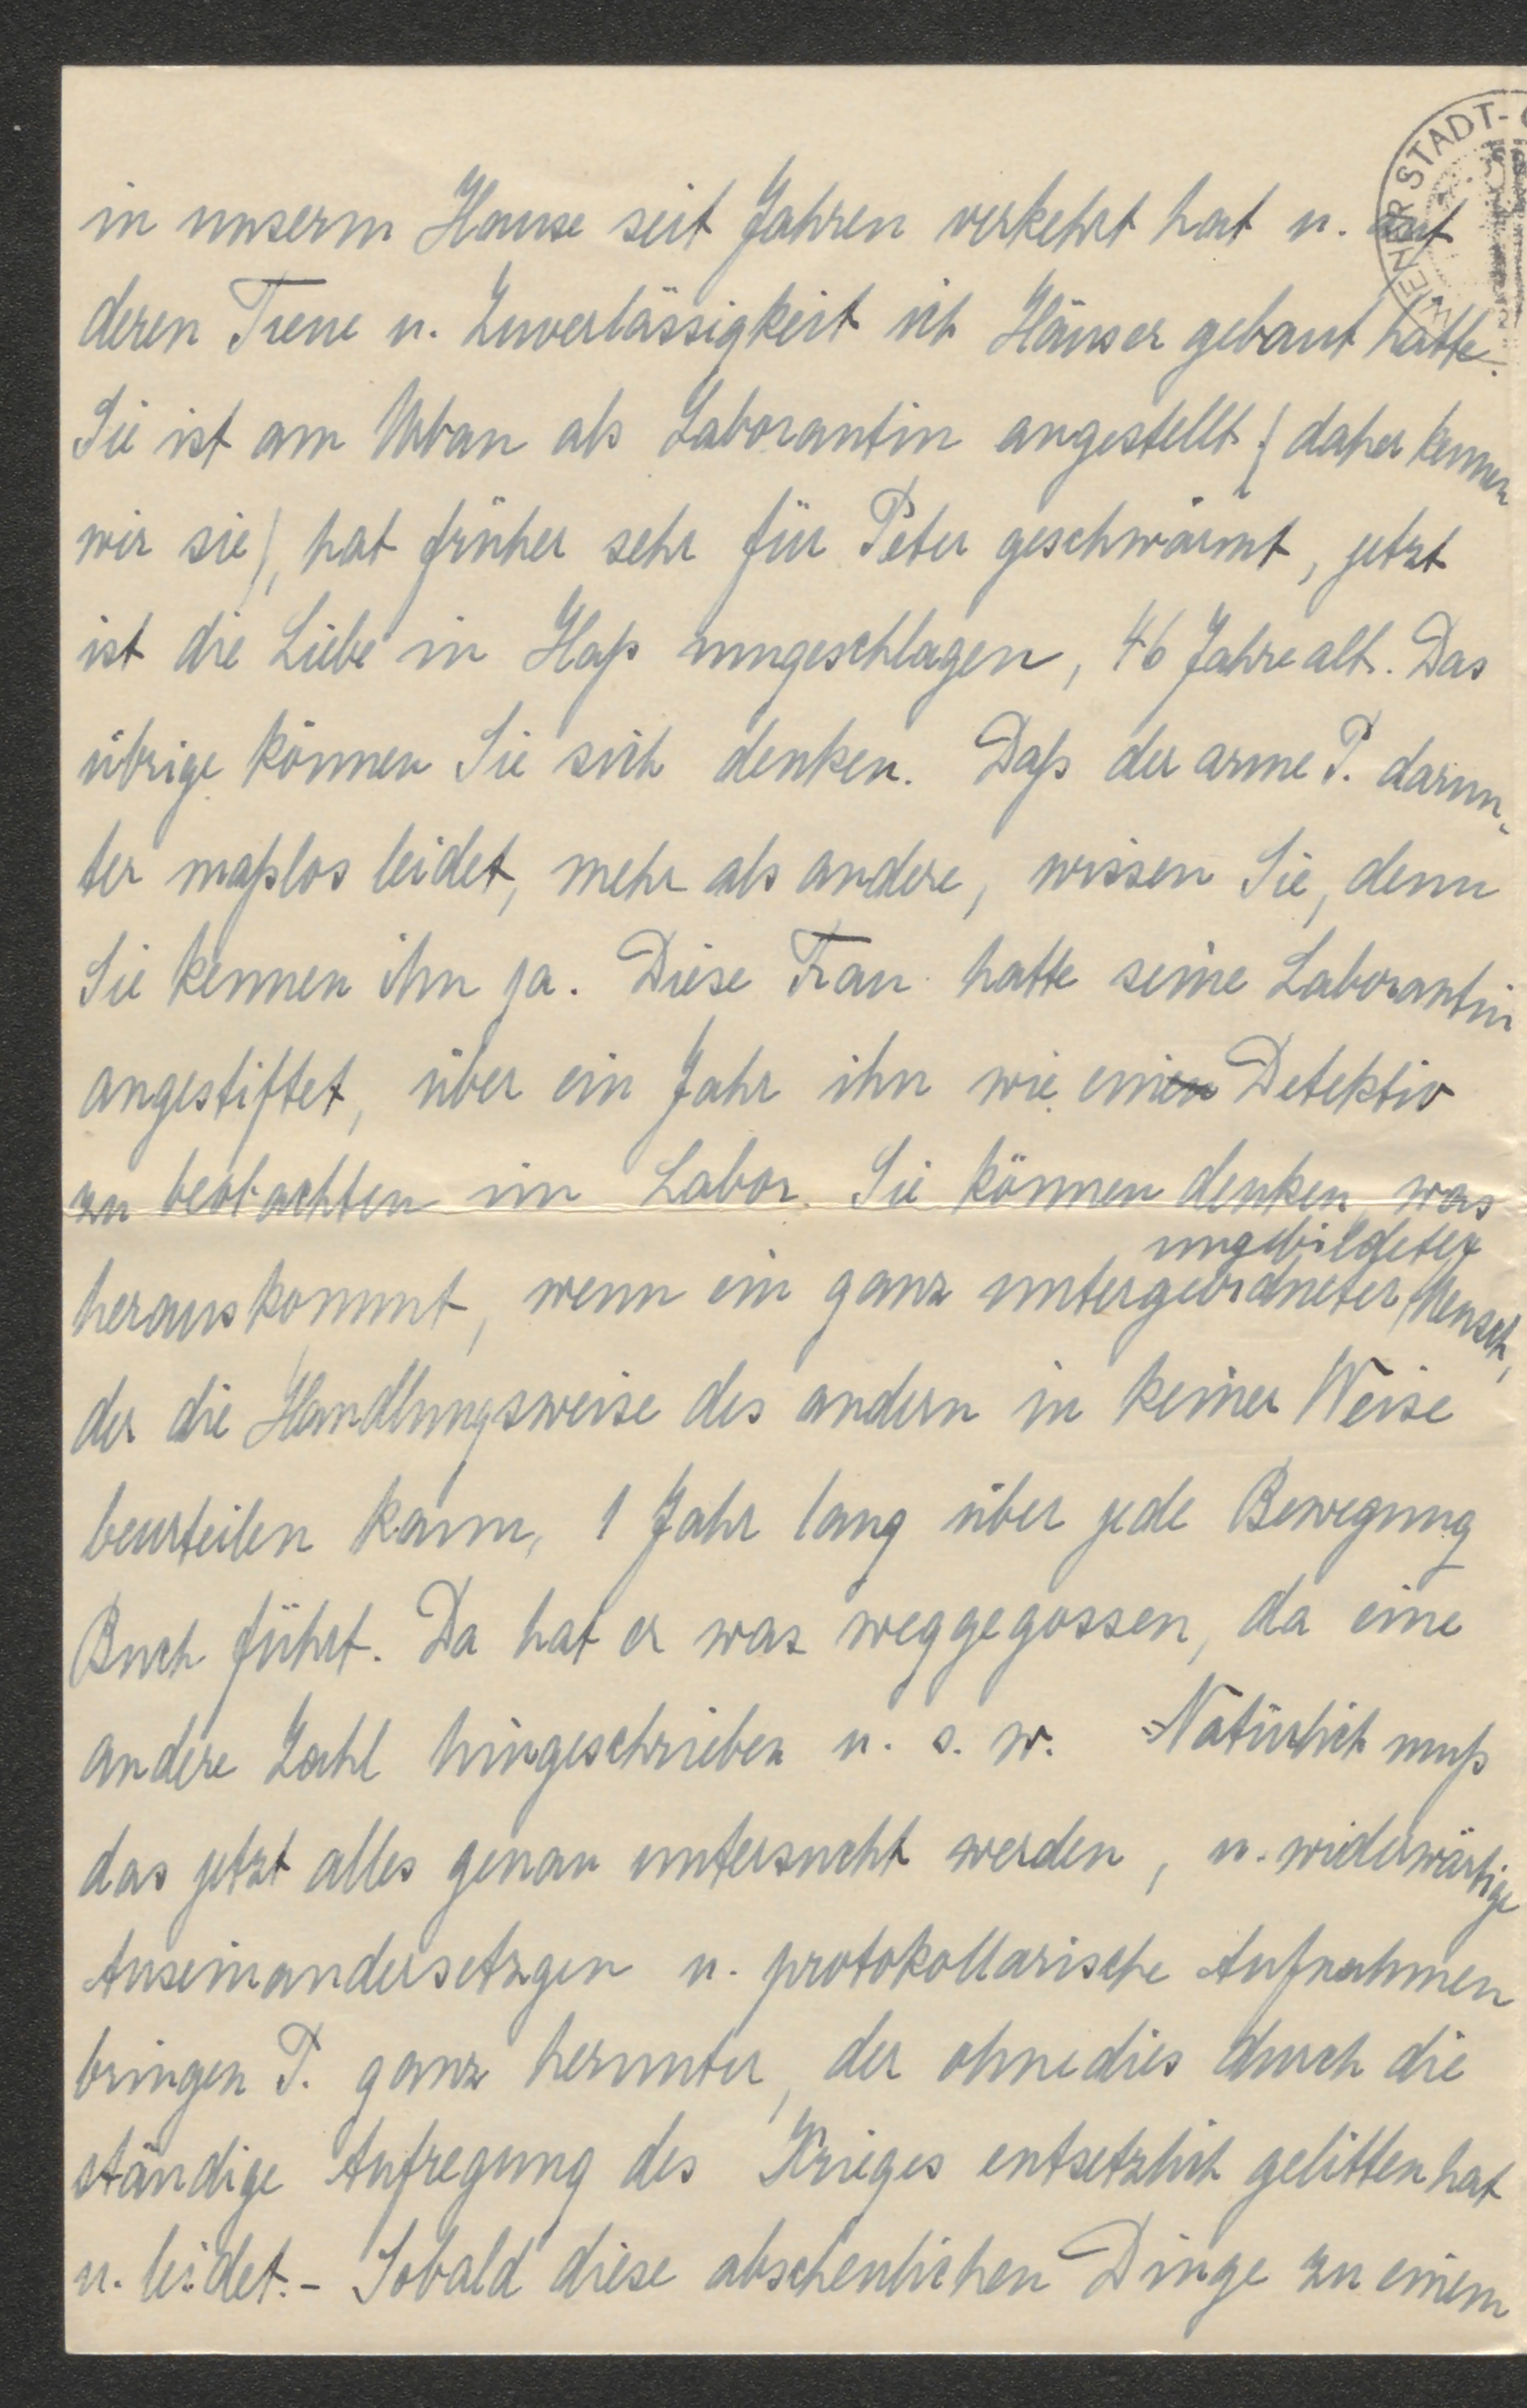 WIENER STADT-
in unserm Hause seit Jahren verkehrt hat u. auf
deren Treue u. Zuverlässigkeit ich Häuser gebaut hatte.
Sie ist am Urban als Laborantin angestellt (daher kennen
wir sie), hat früher sehr für Peter geschwärmt, jetzt
ist die Liebe in Haß umgeschlagen, 46 Jahre alt. Das
übrige können Sie sich denken. Daß der arme P. darun-
ter maßlos leidet, mehr als andere, wissen Sie, denn
Sie kennen ihn ja. Diese Frau hatte seine Laborantin
angestiftet, über ein Jahr ihn wie ein Detektiv
zu beobachten im Labor. Sie können denken, was
ungebildeter
herauskommt, wenn ein ganz untergeordneter Mensch,
der die Handlungsweise des andern in keiner Weise
beurteilen kann, 1 Jahr lang über jede Bewegung
Buch führt. Da hat er was weggegossen, da eine
andere Zahl hingeschrieben u. s. w. Natürlich muß
das jetzt alles genau untersucht werden, u. widerwärtige
Auseinandersetzgen u. protokollarische Aufnahmen
bringen P. ganz herunter, der ohnedies durch die
ständige Aufregung des Krieges entsetzlich gelitten hat
u. leidet. - Sobald diese abscheulichen Dinge zu einem